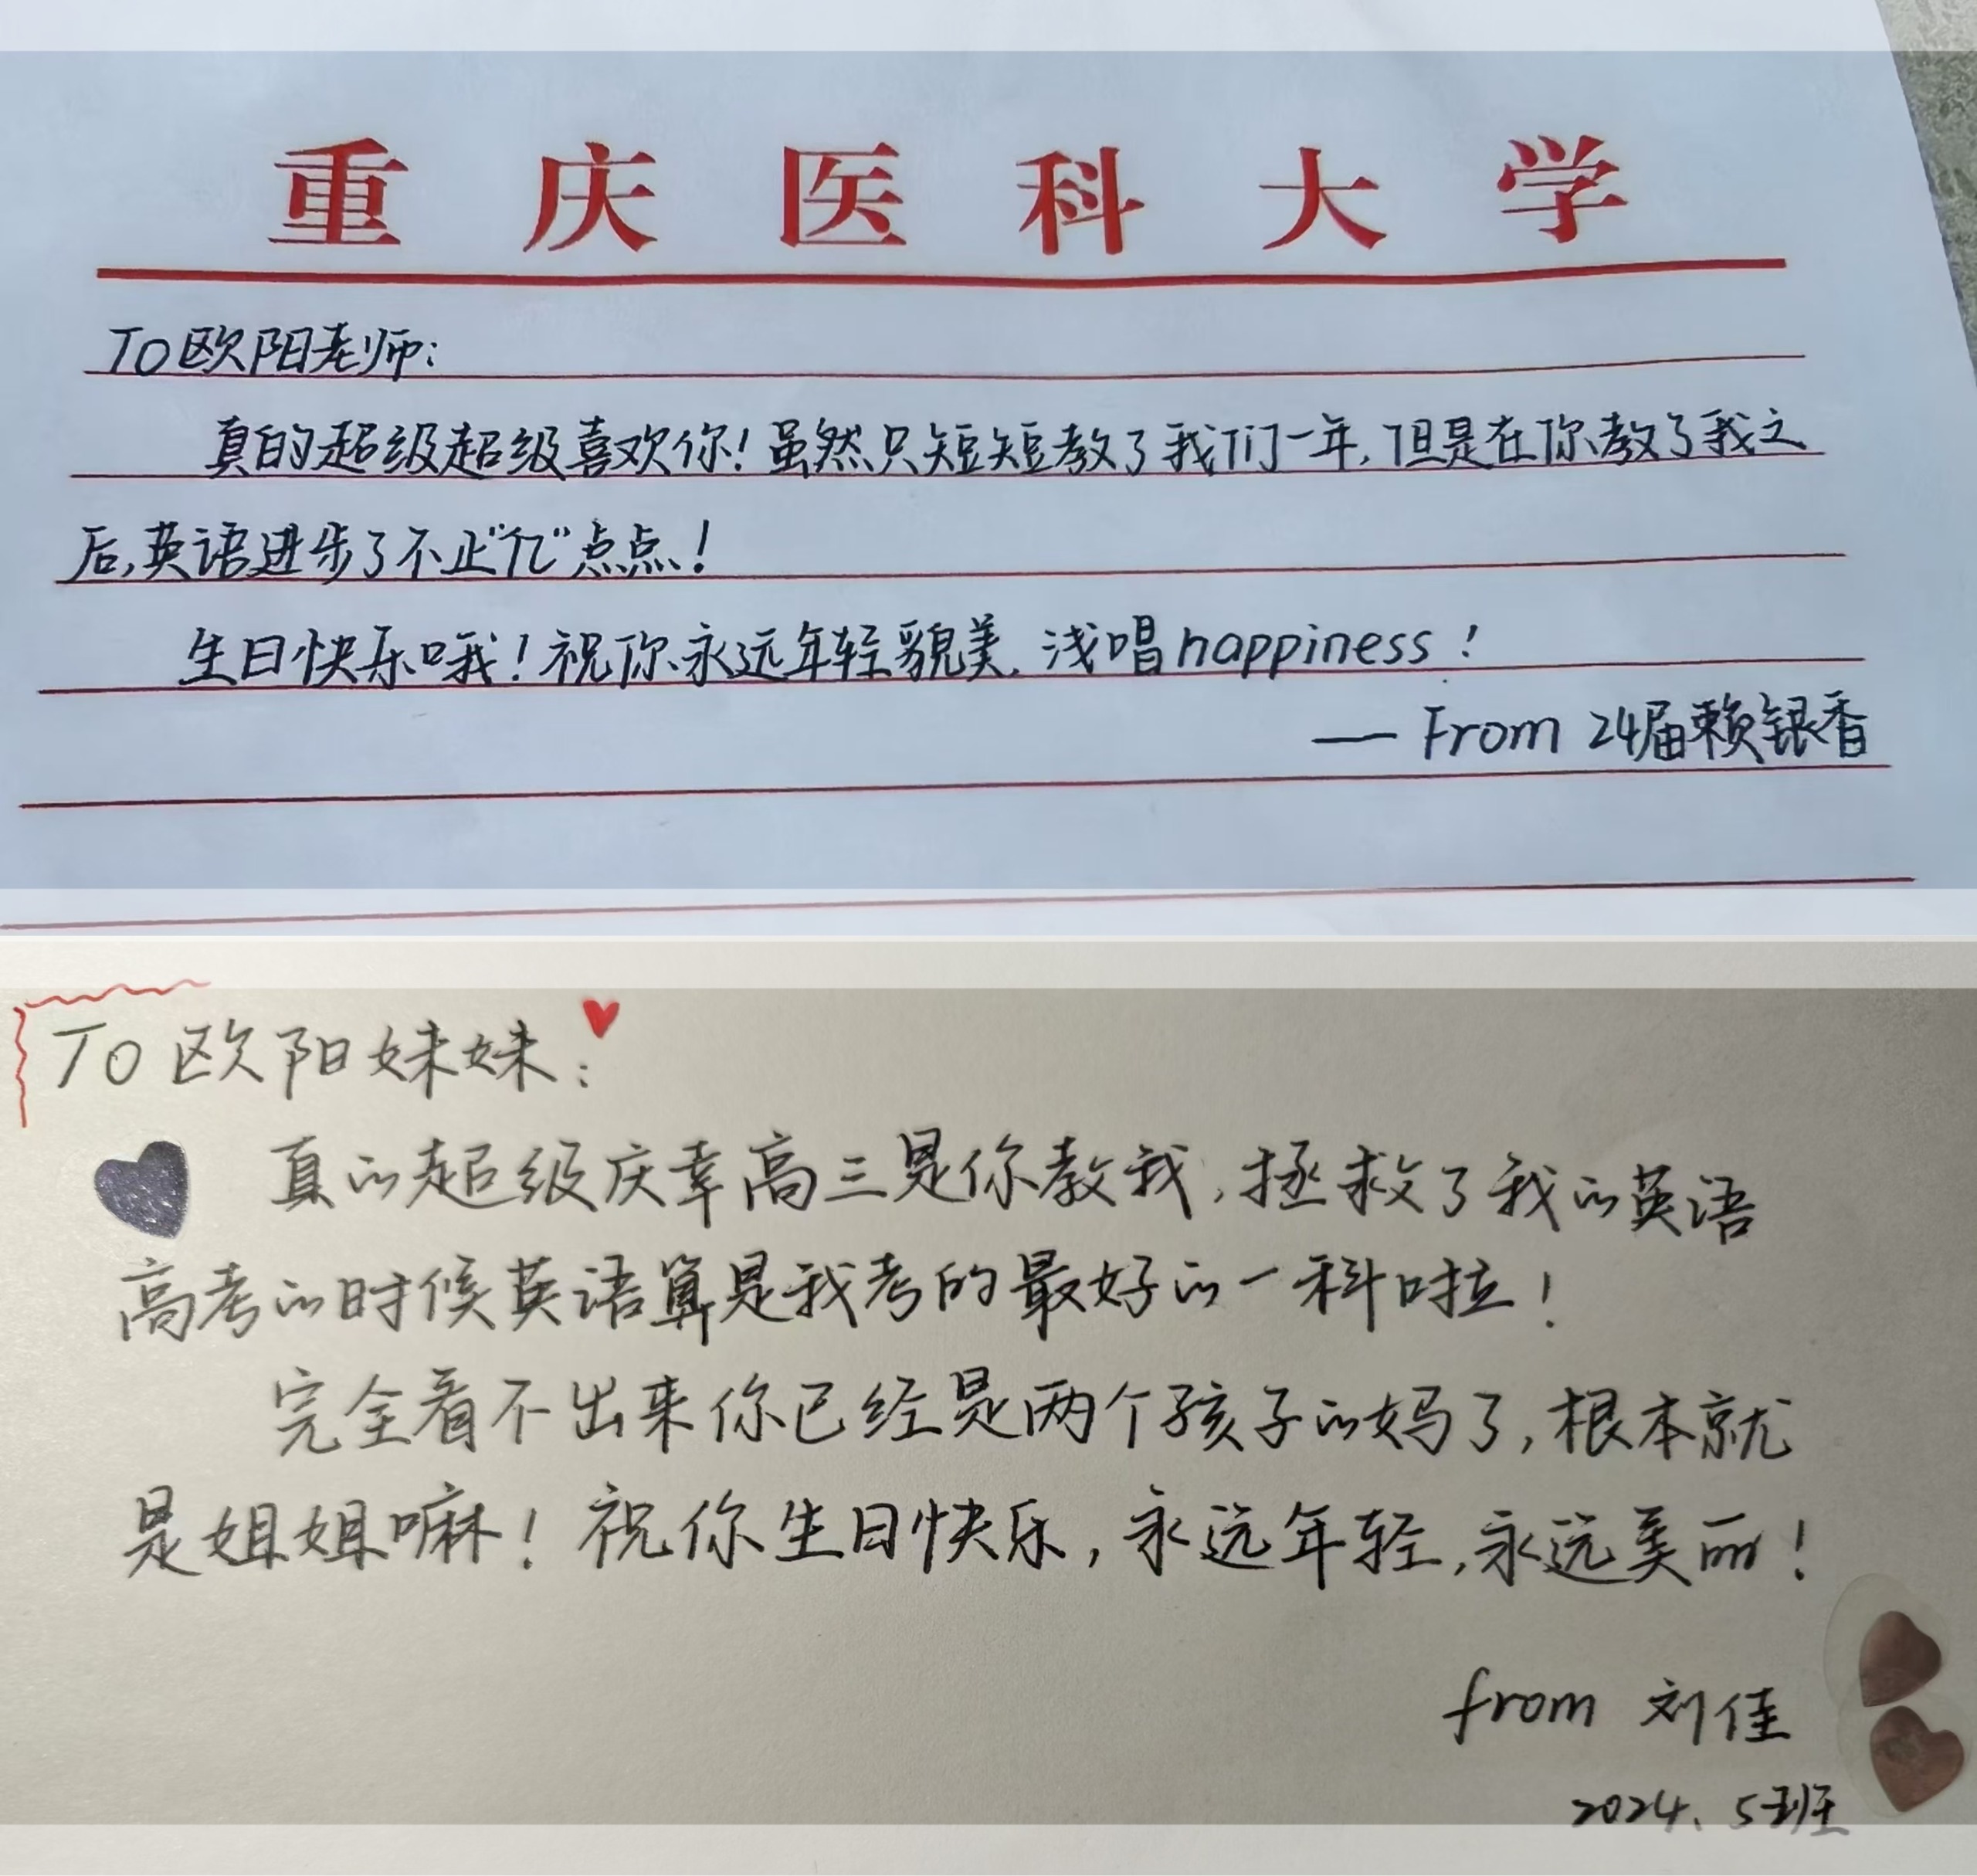 重庆医科大学
To欧阳老师:
真的超级超级喜欢你!虽然只短短教了我们一年,但是在你教了我之
后,英语进步了不止“亿”点点!
生日快乐哦!祝你永远年轻貌美.浅唱happiness!
— From 24届赖银香
To欧阳妹妹:
真的超级庆幸高三是你教我,拯救了我的英语
高考的时候英语算是我考的最好的一科啦!
完全看不出来你已经是两个孩子的妈了,根本就
是姐姐嘛!祝你生日快乐,永远年轻,永远美丽!
from 刘佳
2024.5班